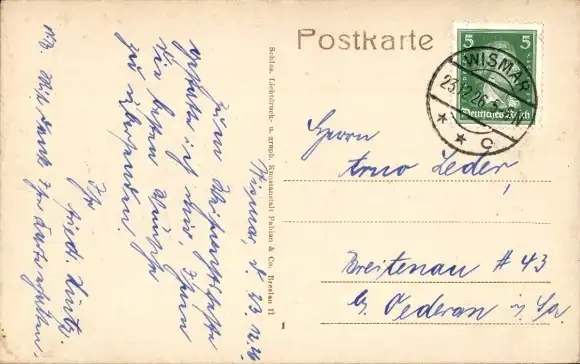 Postkarte
5 5
Deutsches Reich
WISMAR
23.12.26.5
* * c
Herrn
Arno Zeder,
Breitenau # 43
b/ Oederan i/Sa.
Schles. Lichtdruck- u. graph. Kunstanstalt Fabian & Co. Breslau II
1
Wismar, d. 23.12.26
Zum Weihnachtsfeste
gestatte ich mir, Ihnen
die besten Wünsche
zu übersenden.
Ihr
Friedr.
NB. Mit Dank Ihre Karte erhalten.